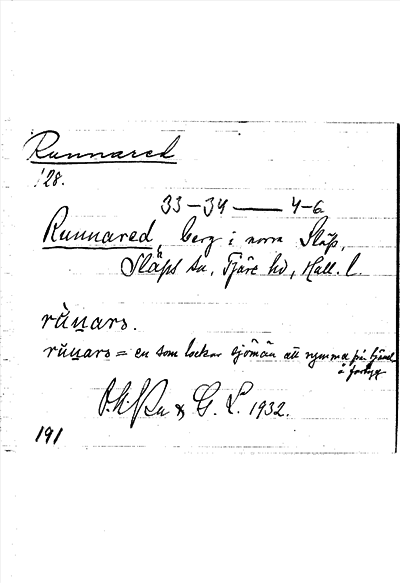 Runnared
128.
33–34 — 4–6
Runnared, berg i norra Släp,
Släps sn, Fjäre hd, Hall. l.
rùn̲ars.
rŭn̲ars = en som lockar sjömän att rymma från tjänst
å fartyg
& G. L. 1932.
191